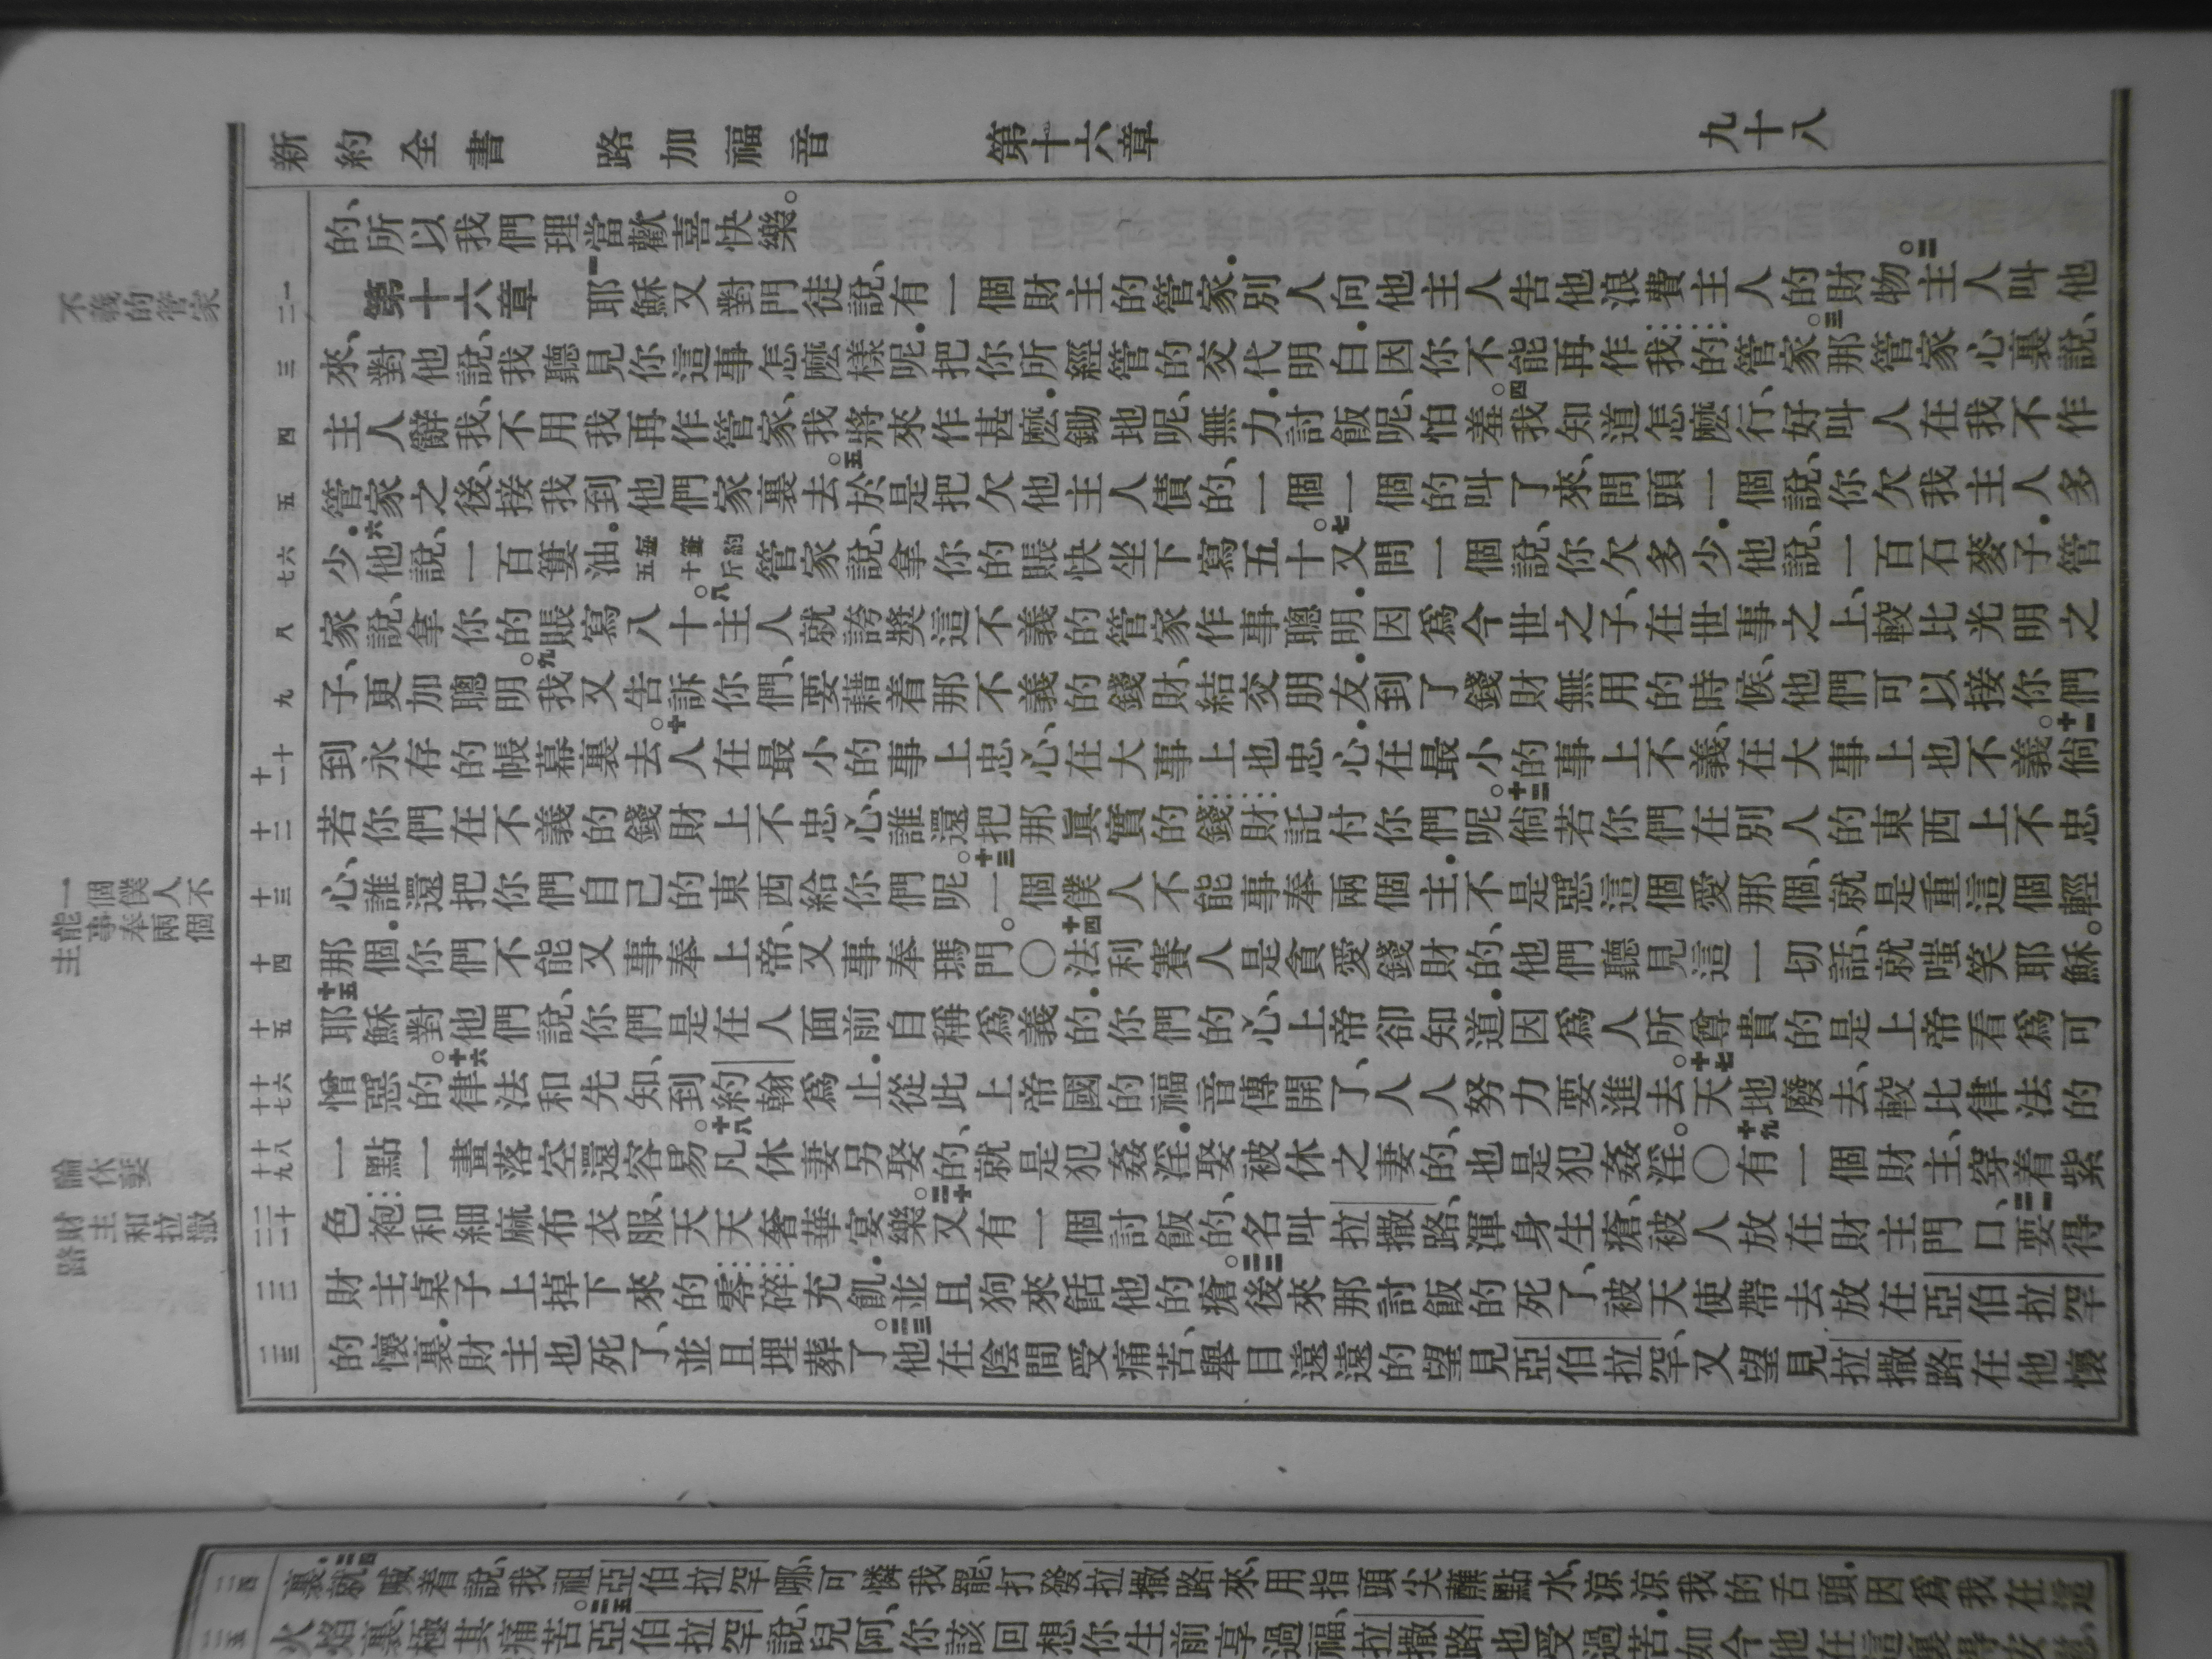 新約全書 路加福音 第十六章 九十八
的、所以我們理當歡喜快樂。
二 一
第十六章 一耶穌又對門徒說、有一個財主的管家．別人向他主人告他浪費主人的財物。二主人叫他
三
來、對他說、我聽見你這事怎麼樣呢．把你所經管的交代明白．因你不能再作我的管家。三那管家心裏說、
四
主人辭我、不用我再作管家、我將來作甚麼．鋤地呢、無力．討飯呢、怕羞。四我知道怎麼行、好叫人在我不作
五
管家之後、接我到他們家裏去。五於是把欠他主人債的、一個一個的叫了來、問頭一個說、你欠我主人多
七 六
少．六他說、一百簍油．每簍約五十斤管家說、拿你的賬快坐下寫五十。七又問一個說、你欠多少．他說、一百石麥子．管
八
家說、拿你的賬寫八十。八主人就誇奬這不義的管家作事聰明．因爲今世之子、在世事之上、較比光明之
九
子、更加聰明。九我又告訴你們、要藉着那不義的錢財、結交朋友．到了錢財無用的時候、他們可以接你們
十一 十
到永存的帳幕裏去。十人在最小的事上忠心、在大事上也忠心．在最小的事上不義、在大事上也不義。十一倘
十二
若你們在不義的錢財上不忠心、誰還把那眞實的錢財託付你們呢。十二倘若你們在別人的東西上不忠
十三
心、誰還把你們自己的東西給你們呢。十三一個僕人不能事奉兩個主．不是惡這個愛那個、就是重這個輕
十四
那個．你們不能又事奉上帝、又事奉瑪門。〇十四法利賽人是貪愛錢財的、他們聽見這一切話、就嗤笑耶穌。
十五
十五耶穌對他們說、你們是在人面前自稱爲義的．你們的心、上帝卻知道．因爲人所尊貴的是上帝看爲可
十七 十六
憎惡的。十六律法和先知、到約翰爲止．從此上帝國的福音傳開了、人人努力要進去。十七天地廢去、較比律法的
十九 十八
一點一畫落空還容易。十八凡休妻另娶的、就是犯姦淫．娶被休之妻的、也是犯姦淫。〇十九有一個財主、穿着紫
二一 二十
色袍和細麻布衣服、天天奢華宴樂。二十又有一個討飯的、名叫拉撒路、渾身生瘡、被人放在財主門口、二一要得
二二
財主桌子上掉下來的零碎充飢．並且狗來餂他的瘡。二二後來那討飯的死了、被天使帶去放在亞伯拉罕
二三
的懷裏．財主也死了、並且埋葬了。二三他在陰間受痛苦、舉目遠遠的望見亞伯拉罕、又望見拉撒路在他懷
不義的管家
一個僕人不
能事奉兩個
主
論休妻
財主和拉撒
路
二四
裏．二四就喊着說、我祖亞伯拉罕哪、可憐我罷、打發拉撒路來、用指頭尖蘸點水、涼涼我的舌頭．因爲我在這
二五
火焰裏、極其痛苦。二五亞伯拉罕說、兒阿、你該回想你生前享過福、拉撒路也受過苦．如今他在這裏得安慰、